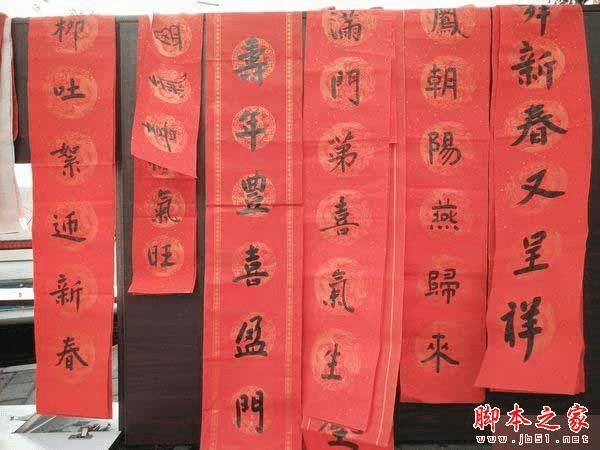 柳吐絮迎新春
氣旺
壽年豐喜盈門
滿門第喜氣生
鳳朝陽燕歸來
舞新春又呈祥
脚本之家
www.jb51.net